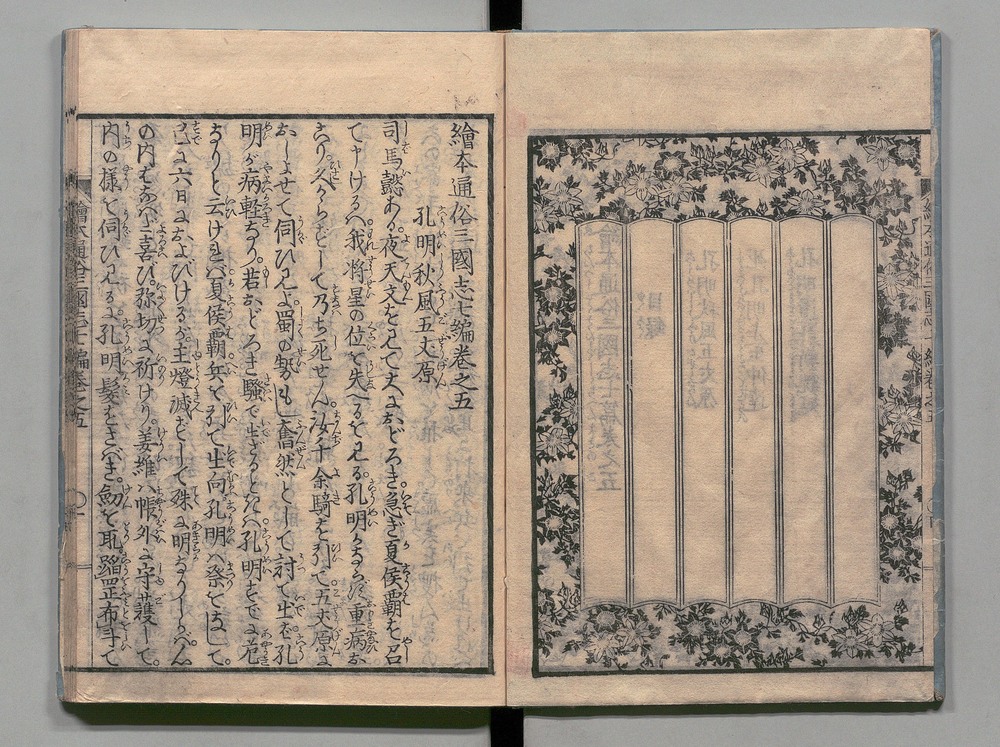 繪本通俗三國志七編巻之五
孔明秋風五丈原
司馬懿ある夜天文をミて大におどろき急ぎ夏侯覇を召
て申けるハ我将星の位を失へるを見る孔明かならず重病お
こり久からずして乃ち死せん汝千余騎を引て五丈原に
おしよせて伺ひ見よ蜀の勢もし奮然として討て出なバ孔
明が病軽なり若おどろき騒で出ざるときハ孔明すでに危
きなりと云けれバ夏侯覇兵を引て出向孔明ハ祭をはじめて
已に六日におよびけるが主燈滅ずして殊に明なりしかバ心
の内をなハだ喜び弥切に祈けり姜維ハ帳外に守護して
内の様を伺ひ見るに孔明髪をさバき剱を取踏罡布斗て
繪本通俗三國志七編巻之五